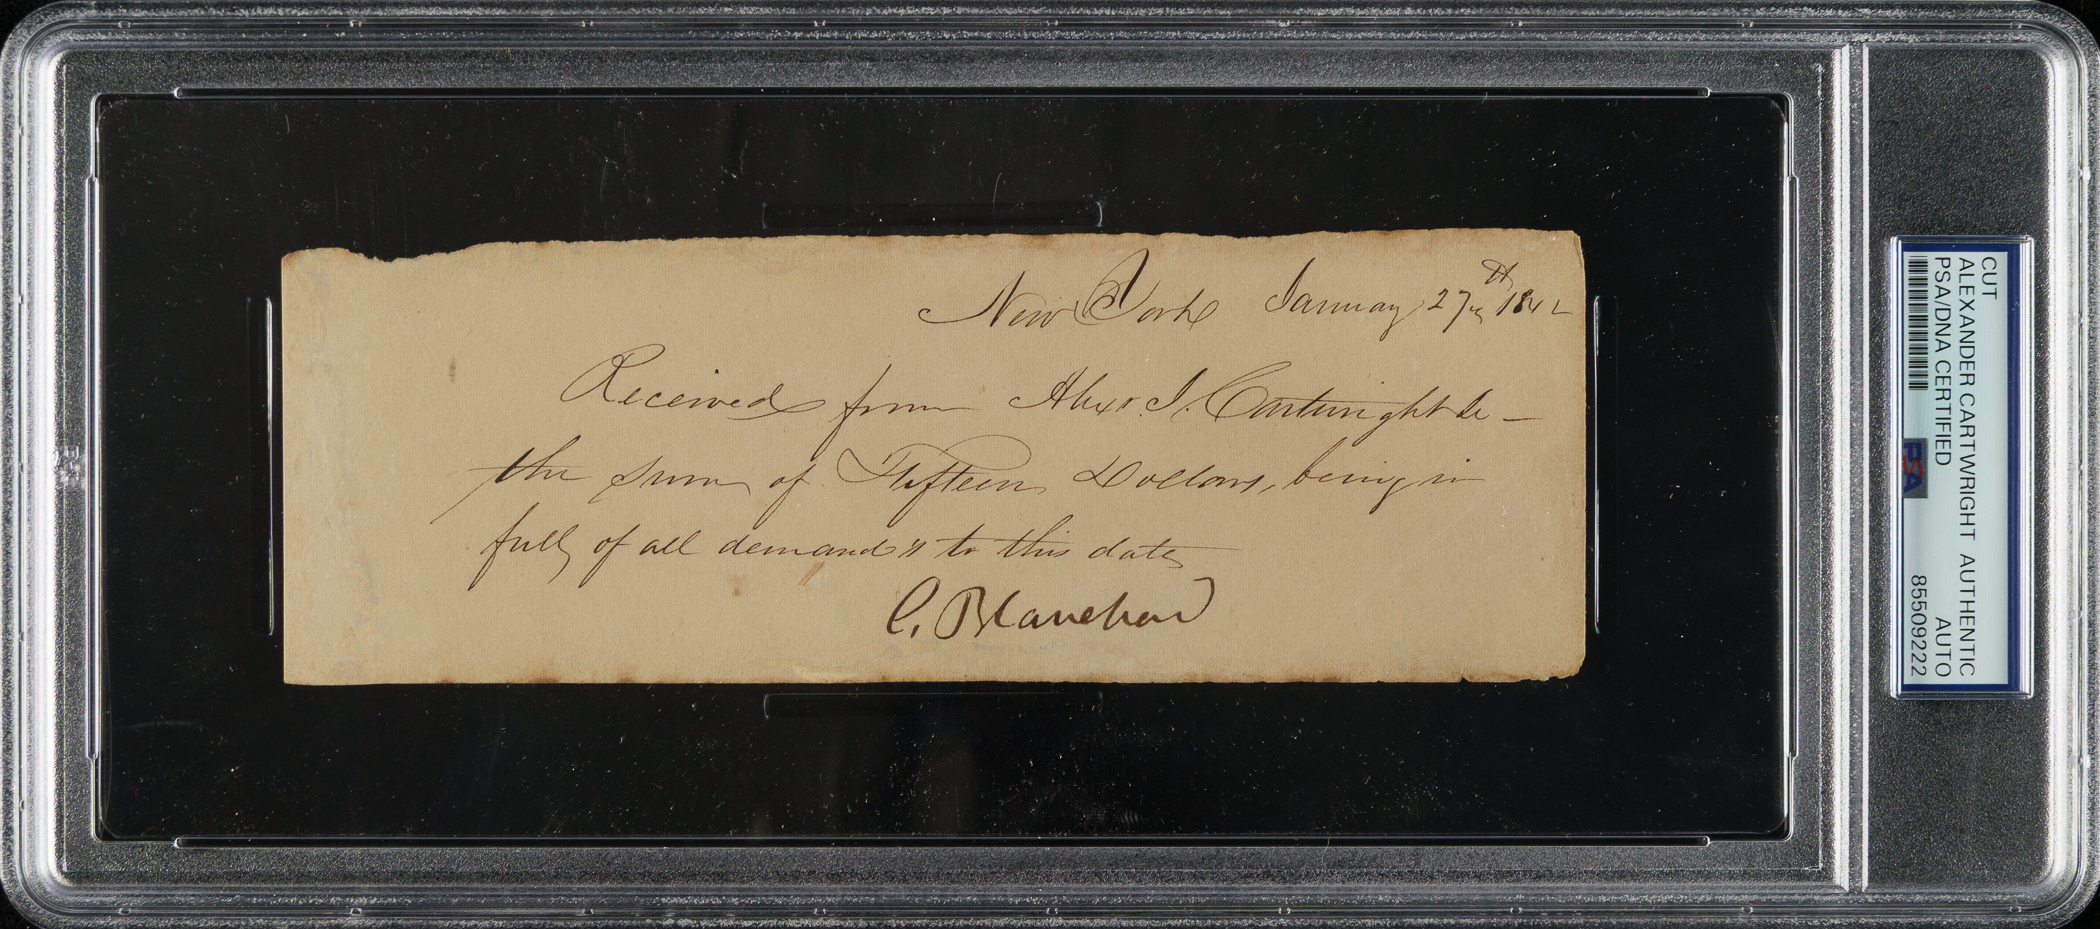 New York January 27th 1842
Received from Alexr. J. Cartwright Jr -
the sum of Fifteen Dollars, being in
full of all demands to this date
C. Blanchard
CUT
ALEXANDER CARTWRIGHT AUTHENTIC
PSA/DNA CERTIFIED AUTO
85509222
PSA